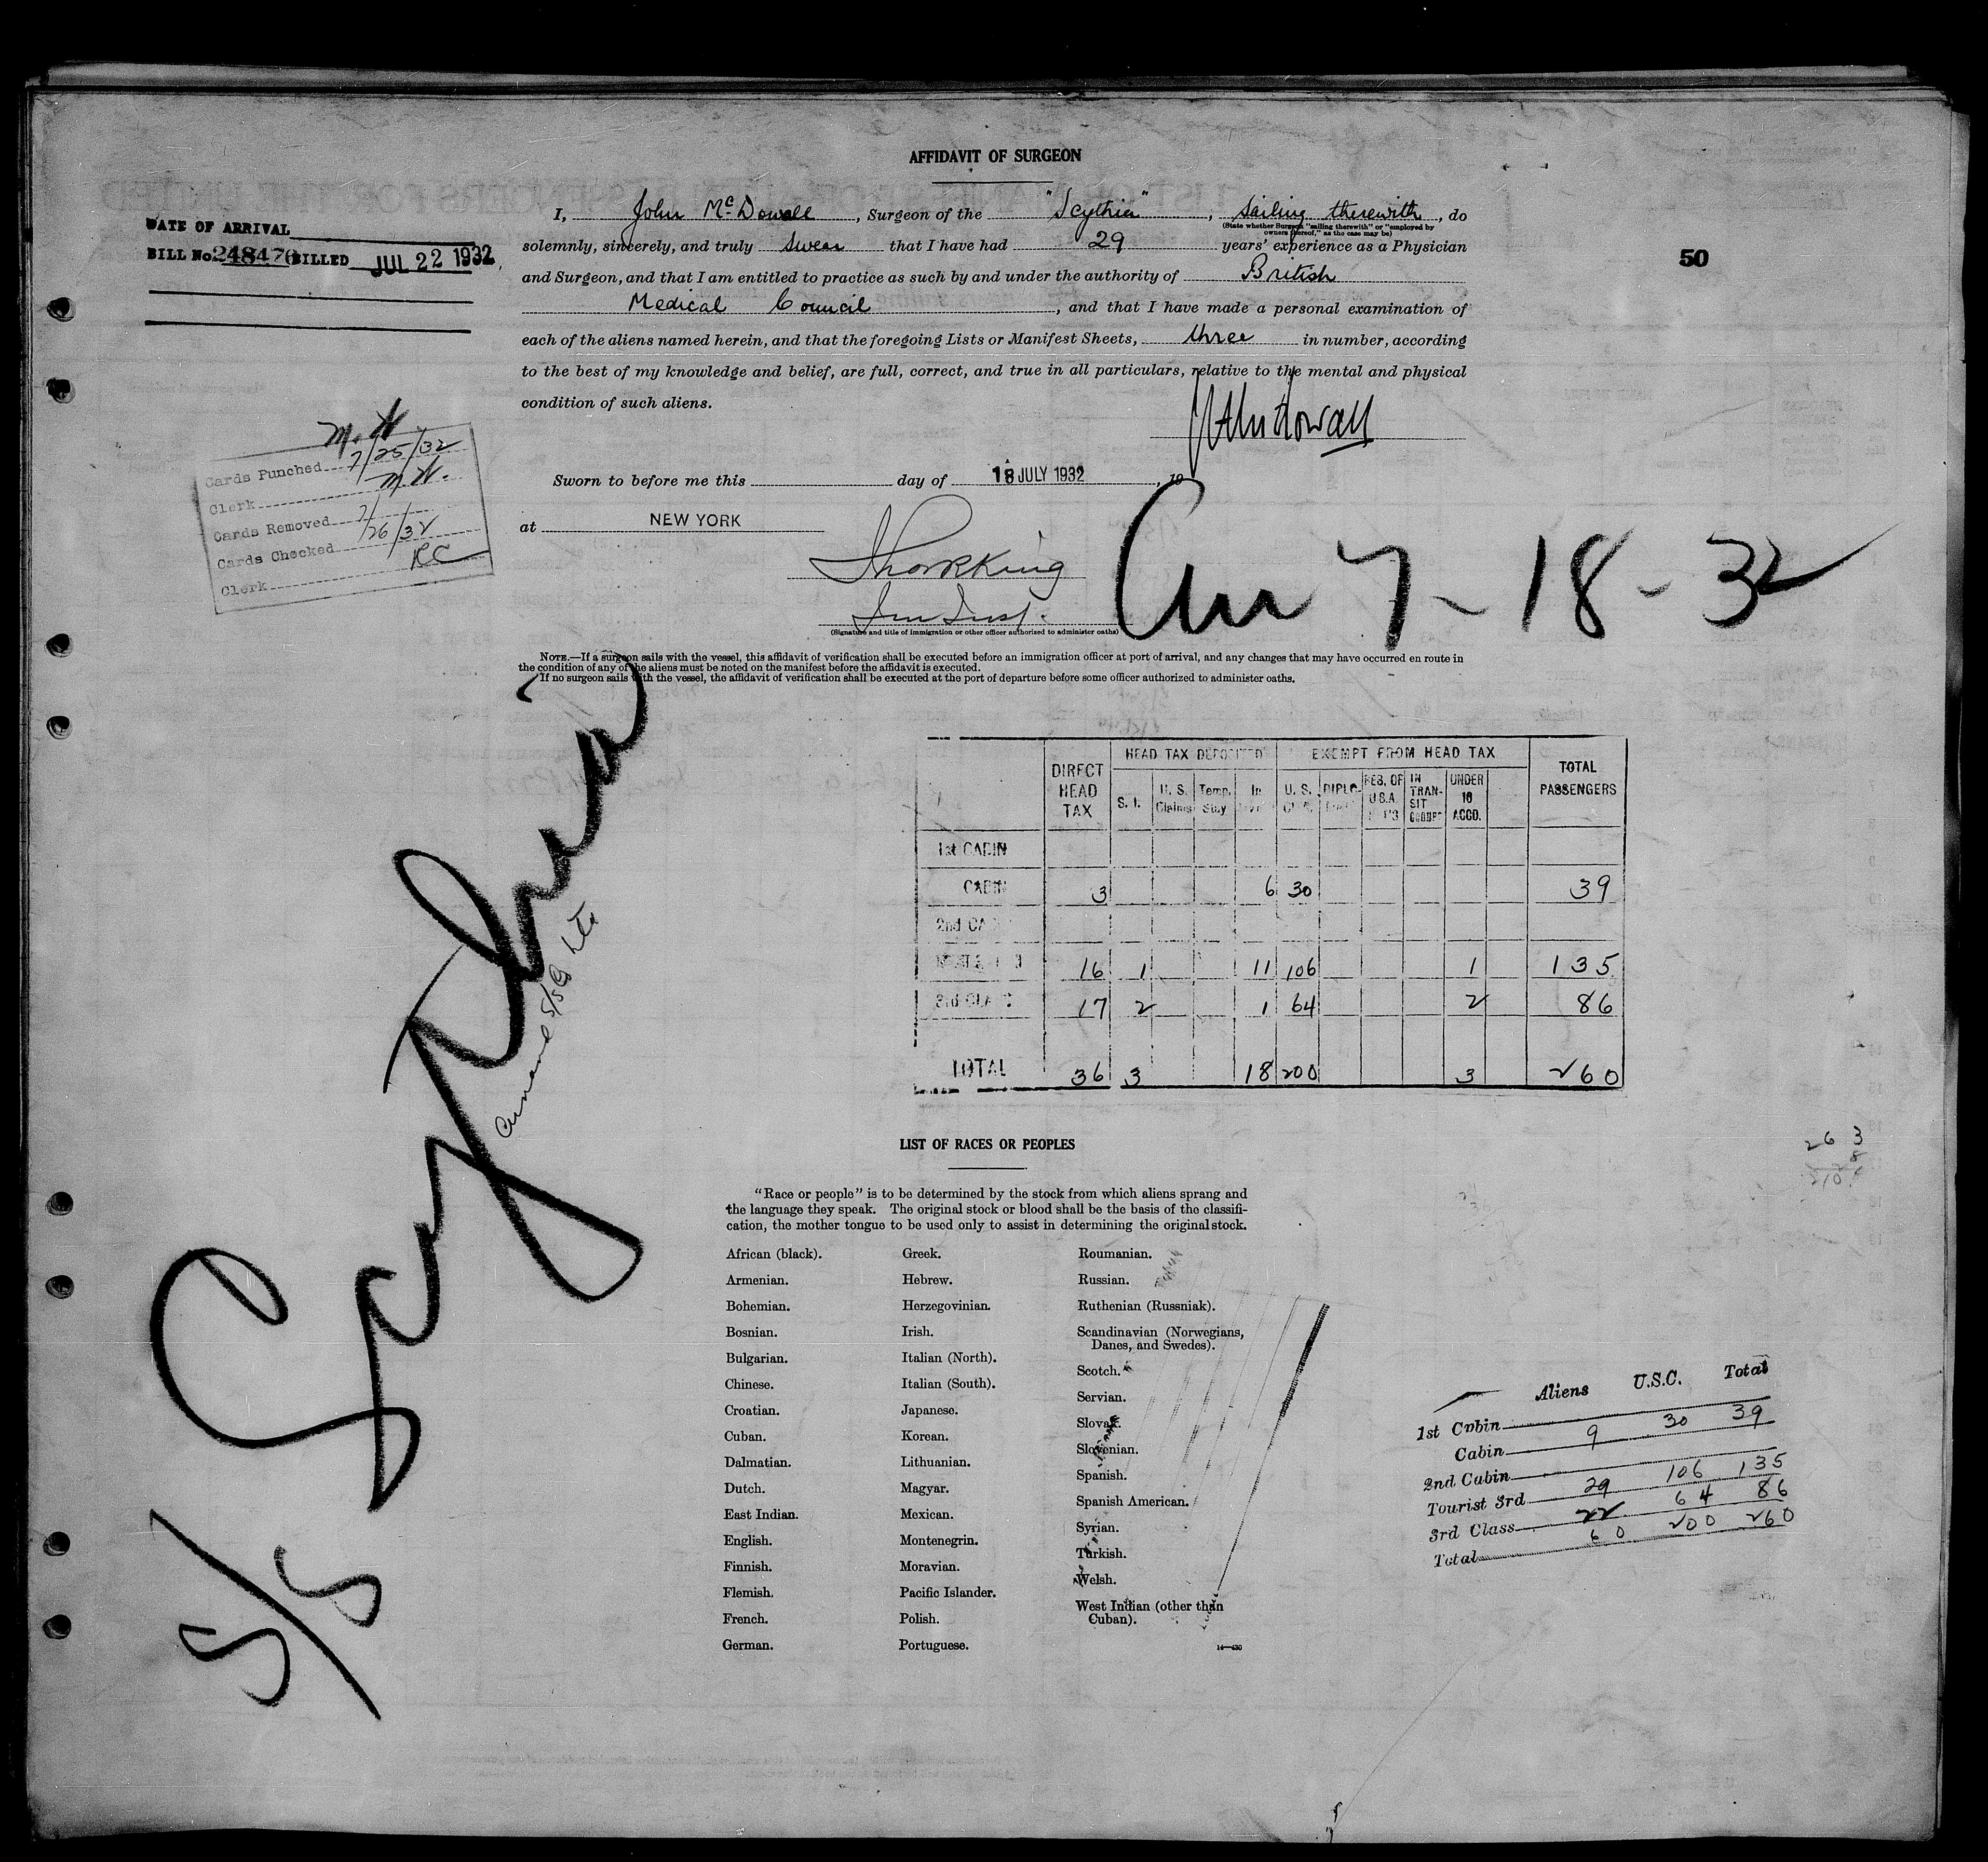 AFFIDAVIT OF SURGEON
DATE OF ARRIVAL
BILL No. 248476 BILLED JUL 22 1932
50
I, John McDowall, Surgeon of the "Scythia", sailing therewith, do
(State whether Surgeon "sailing therewith" or "employed by
owners thereof," as the case may be)
solemnly, sincerely, and truly swear that I have had 29 years' experience as a Physician
and Surgeon, and that I am entitled to practice as such by and under the authority of British
Medical Council, and that I have made a personal examination of
each of the aliens named herein, and that the foregoing Lists or Manifest Sheets, three in number, according
to the best of my knowledge and belief, are full, correct, and true in all particulars, relative to the mental and physical
condition of such aliens.
M. W.
Cards Punched 7/25/32
Clerk M. W.
Cards Removed 7/
Cards Checked 26/32
Clerk RC
Sworn to before me this day of 18 JULY 1932, 19
at NEW YORK
Arr 7-18-32
(Signature and title of immigration or other officer authorized to administer oaths)
NOTE.—If a surgeon sails with the vessel, this affidavit of verification shall be executed before an immigration officer at port of arrival, and any changes that may have occurred en route in
the condition of any of the aliens must be noted on the manifest before the affidavit is executed.
If no surgeon sails with the vessel, the affidavit of verification shall be executed at the port of departure before some officer authorized to administer oaths.
S/S Scythia
Cunard S/S Co Ltd
DIRECT HEAD TAX HEAD TAX DEPOSITED EXEMPT FROM HEAD TAX TOTAL PASSENGERS
S. I. U. S. Claims Temp. Stay In U. S. DIPLO. RES. OF U.S.A. IN TRANSIT UNDER 16 ACCD.
1st CABIN
CABIN 3 6 30 39
2nd CA
16 1 11 106 1 135
3rd CLA 17 2 1 64 2 86
TOTAL 36 3 18 200 3 260
263
8
LIST OF RACES OR PEOPLES
"Race or people" is to be determined by the stock from which aliens sprang and
the language they speak. The original stock or blood shall be the basis of the classifi-
cation, the mother tongue to be used only to assist in determining the original stock.
African (black).
Armenian.
Bohemian.
Bosnian.
Bulgarian.
Chinese.
Croatian.
Cuban.
Dalmatian.
Dutch.
East Indian.
English.
Finnish.
Flemish.
French.
German.
Greek.
Hebrew.
Herzegovinian.
Irish.
Italian (North).
Italian (South).
Japanese.
Korean.
Lithuanian.
Magyar.
Mexican.
Montenegrin.
Moravian.
Pacific Islander.
Polish.
Portuguese.
Roumanian.
Russian.
Ruthenian (Russniak).
Scandinavian (Norwegians,
Danes, and Swedes).
Scotch.
Servian.
Slovak.
Slovenian.
Spanish.
Spanish American.
Syrian.
Turkish.
Welsh.
West Indian (other than
Cuban).
Aliens U.S.C. Total
1st Cabin
Cabin 9 30 39
2nd Cabin
Tourist 3rd 29 106 135
3rd Class 22 64 86
Total 60 200 260